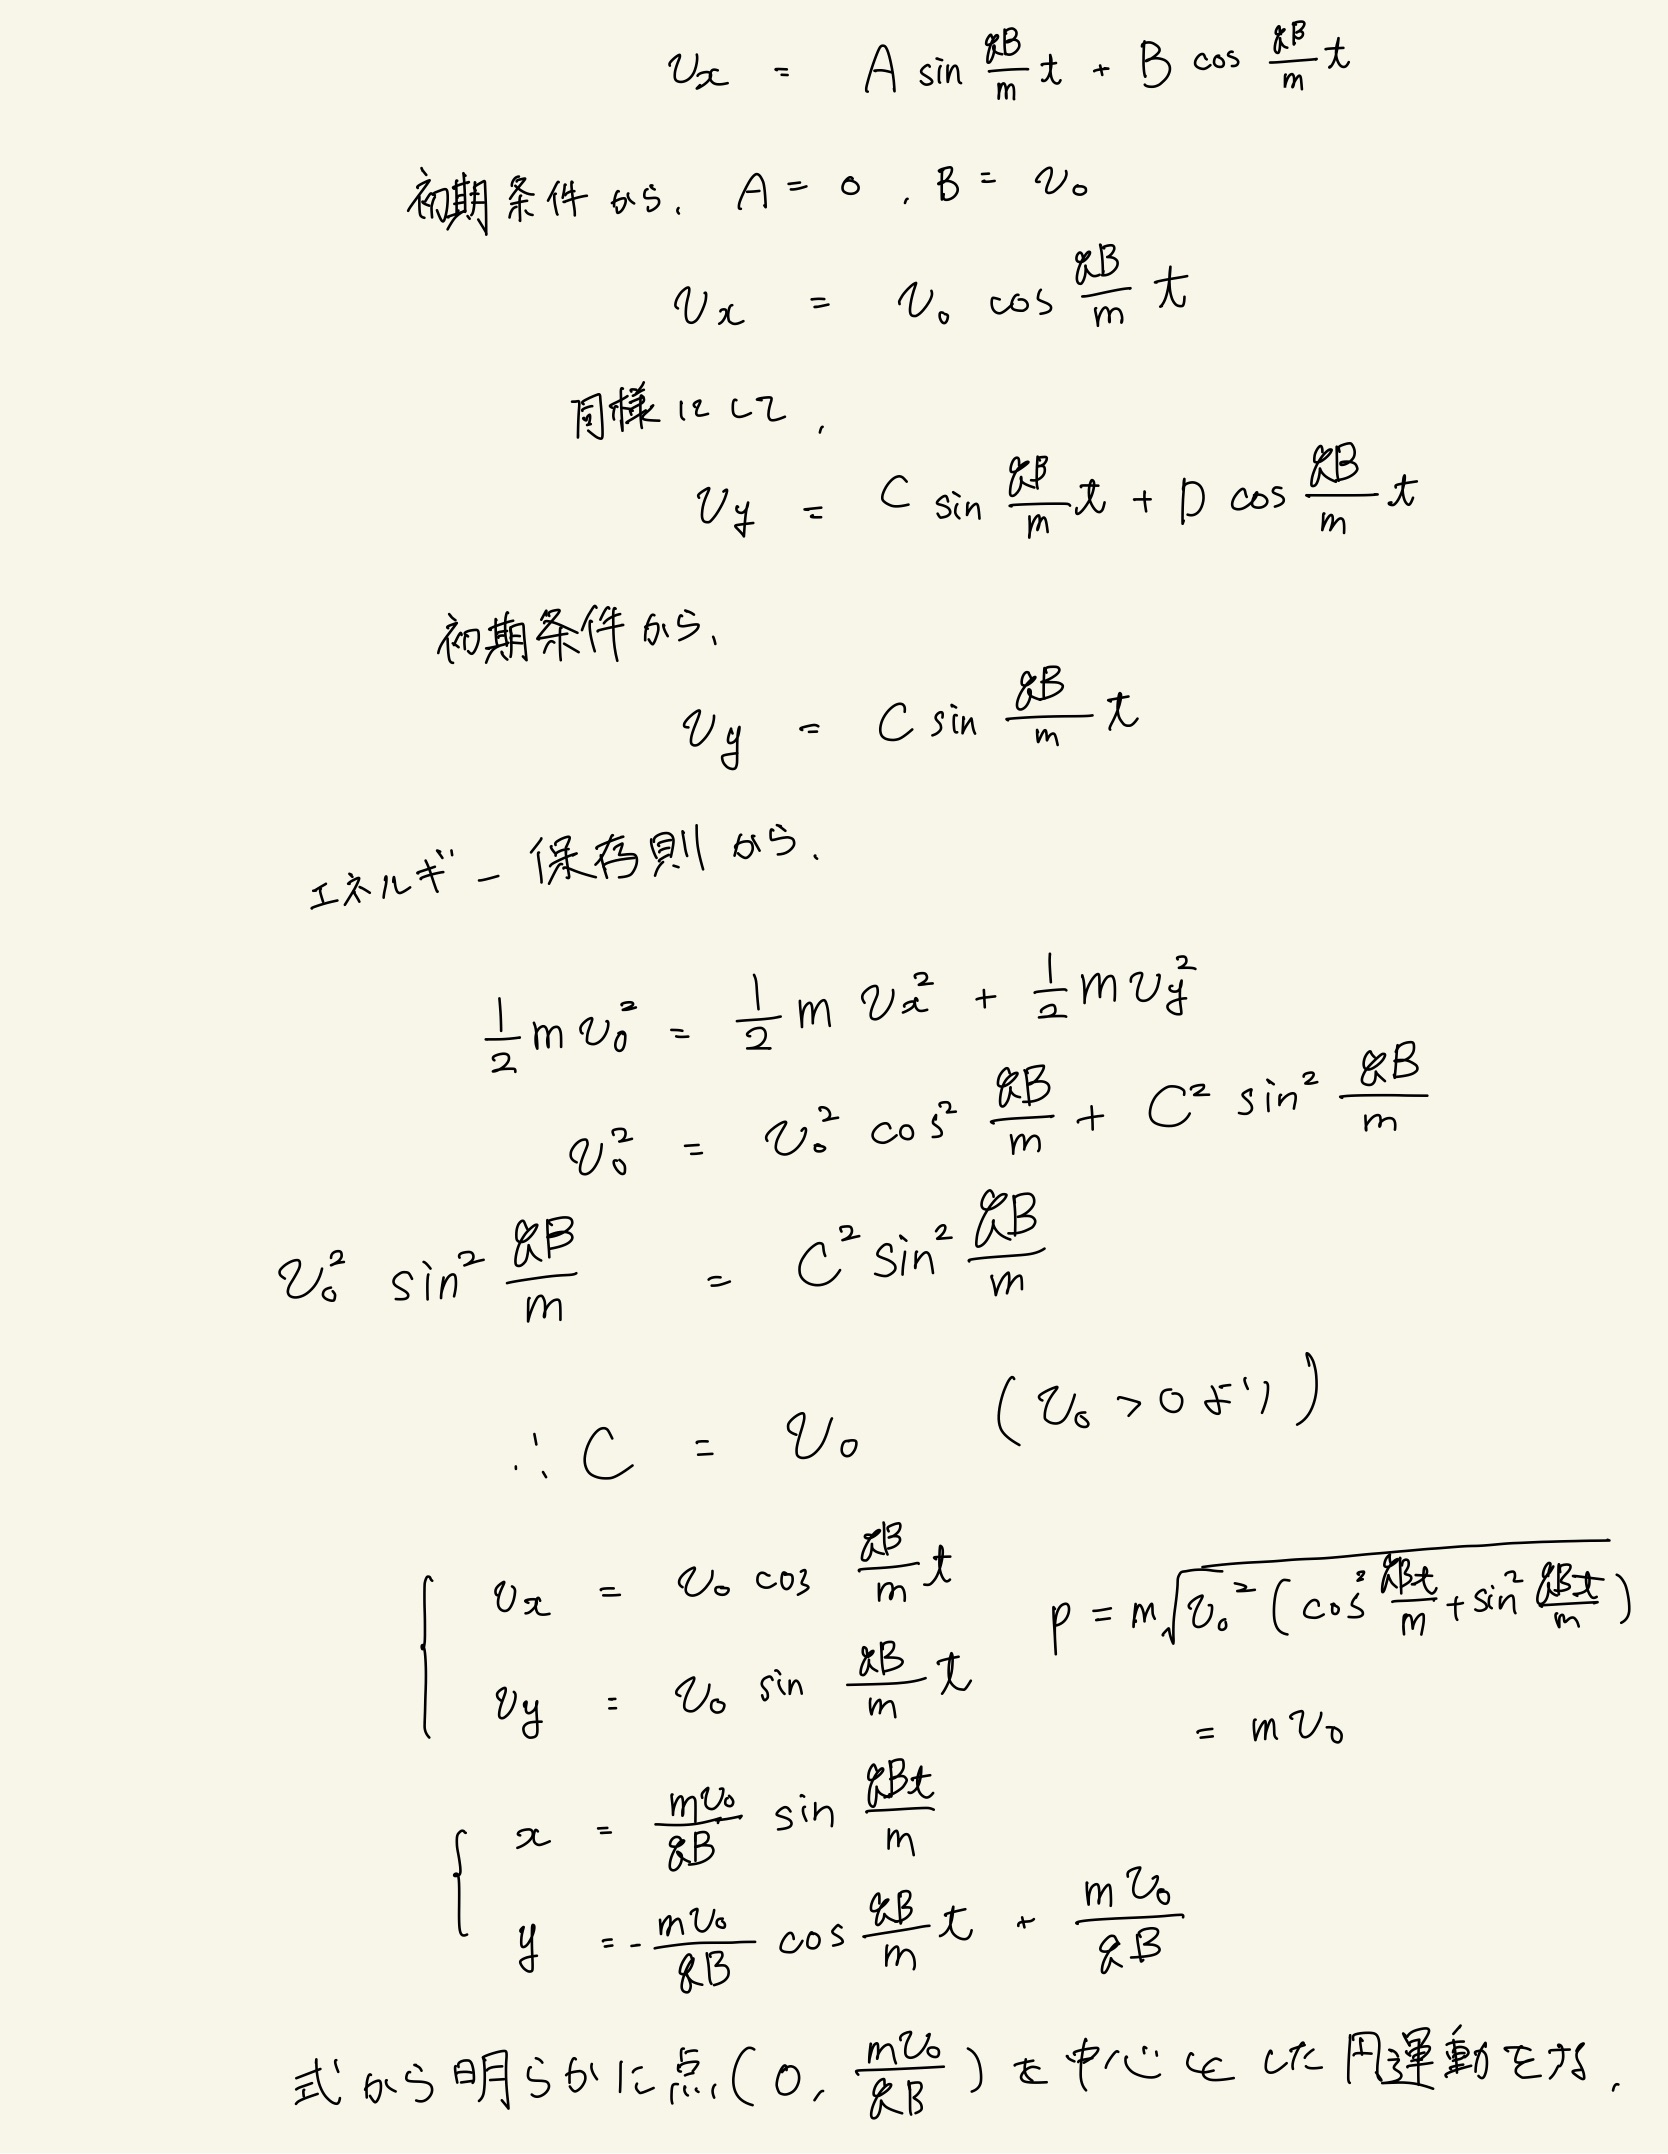 v_x = A sin qB/m t + B cos qB/m t
初期条件から, A = 0 , B = v_0
v_x = v_0 cos qB/m t
同様にして,
v_y = C sin qB/m t + D cos qB/m t
初期条件から、
v_y = C sin qB/m t
エネルギー保存則から、
1/2 m v_0^2 = 1/2 m v_x^2 + 1/2 m v_y^2
v_0^2 = v_0^2 cos^2 qB/m + C^2 sin^2 qB/m
v_0^2 sin^2 qB/m = C^2 sin^2 qB/m
∴ C = v_0 (v_0 > 0 より)
{ v_x = v_0 cos qB/m t
v_y = v_0 sin qB/m t
p = m√(v_0^2 (cos^2 qBt/m + sin^2 qBt/m))
= m v_0
{ x = mv_0/qB sin qBt/m
y = - mv_0/qB cos qB/m t + mv_0/qB
式から明らかに点(0, mv_0/qB)を中心とした円運動をする.